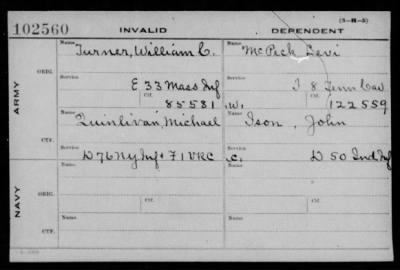 (3-H-5)
102560 INVALID DEPENDENT
Name Turner, William C. Name McPeck Levi
ARMY
ORIG.
Service E 33 Mass Inf Service I 8 Tenn Cav
Ctf. 85581 W. Ctf. 122559
Name Quinlivan, Michael Name Ison, John
CTF.
Service D 76 Ny Inf & 71 VRC C. Service D 50 Ind Inf
NAVY
ORIG.
Name Name
Service Service
Ctf. Ctf.
Name Name
CTF.
Service Service